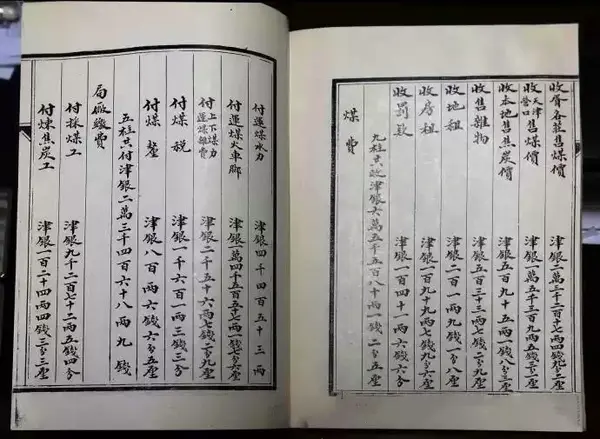 收胥各莊售煤價 津銀二萬三千二百二十七兩四錢九分二厘
收天津營口售煤價 津銀一萬五千三百九兩五錢二分九厘
收本地售焦炭價 津銀五百九十一兩一錢八分三厘
收售雜物 津銀五百三十三兩七錢二分九厘
收地租 津銀二百一兩一錢二分八厘
收房租 津銀一百九十九兩七錢九分六厘
收罰款 津銀一百四十一兩一錢一分五厘
九柱共收津銀六萬五千五百八十一兩一錢二分五厘
煤費
付運煤水力 津銀四千四百五十三兩
付運煤火車脚 津銀一萬四千五百五十七兩一錢七分六厘
付上下煤力運煤雜費 津銀二千五十六兩七錢二分九厘
付煤稅 津銀一千六百一兩三錢三分
付煤釐 津銀八百兩六錢六分五厘
五柱共付津銀二萬三千四百六十八兩九錢
局廠繳費
付採煤工 津銀九千二百七十二兩五錢四分
付煉焦炭工 津銀一百二十四兩四錢三分三厘